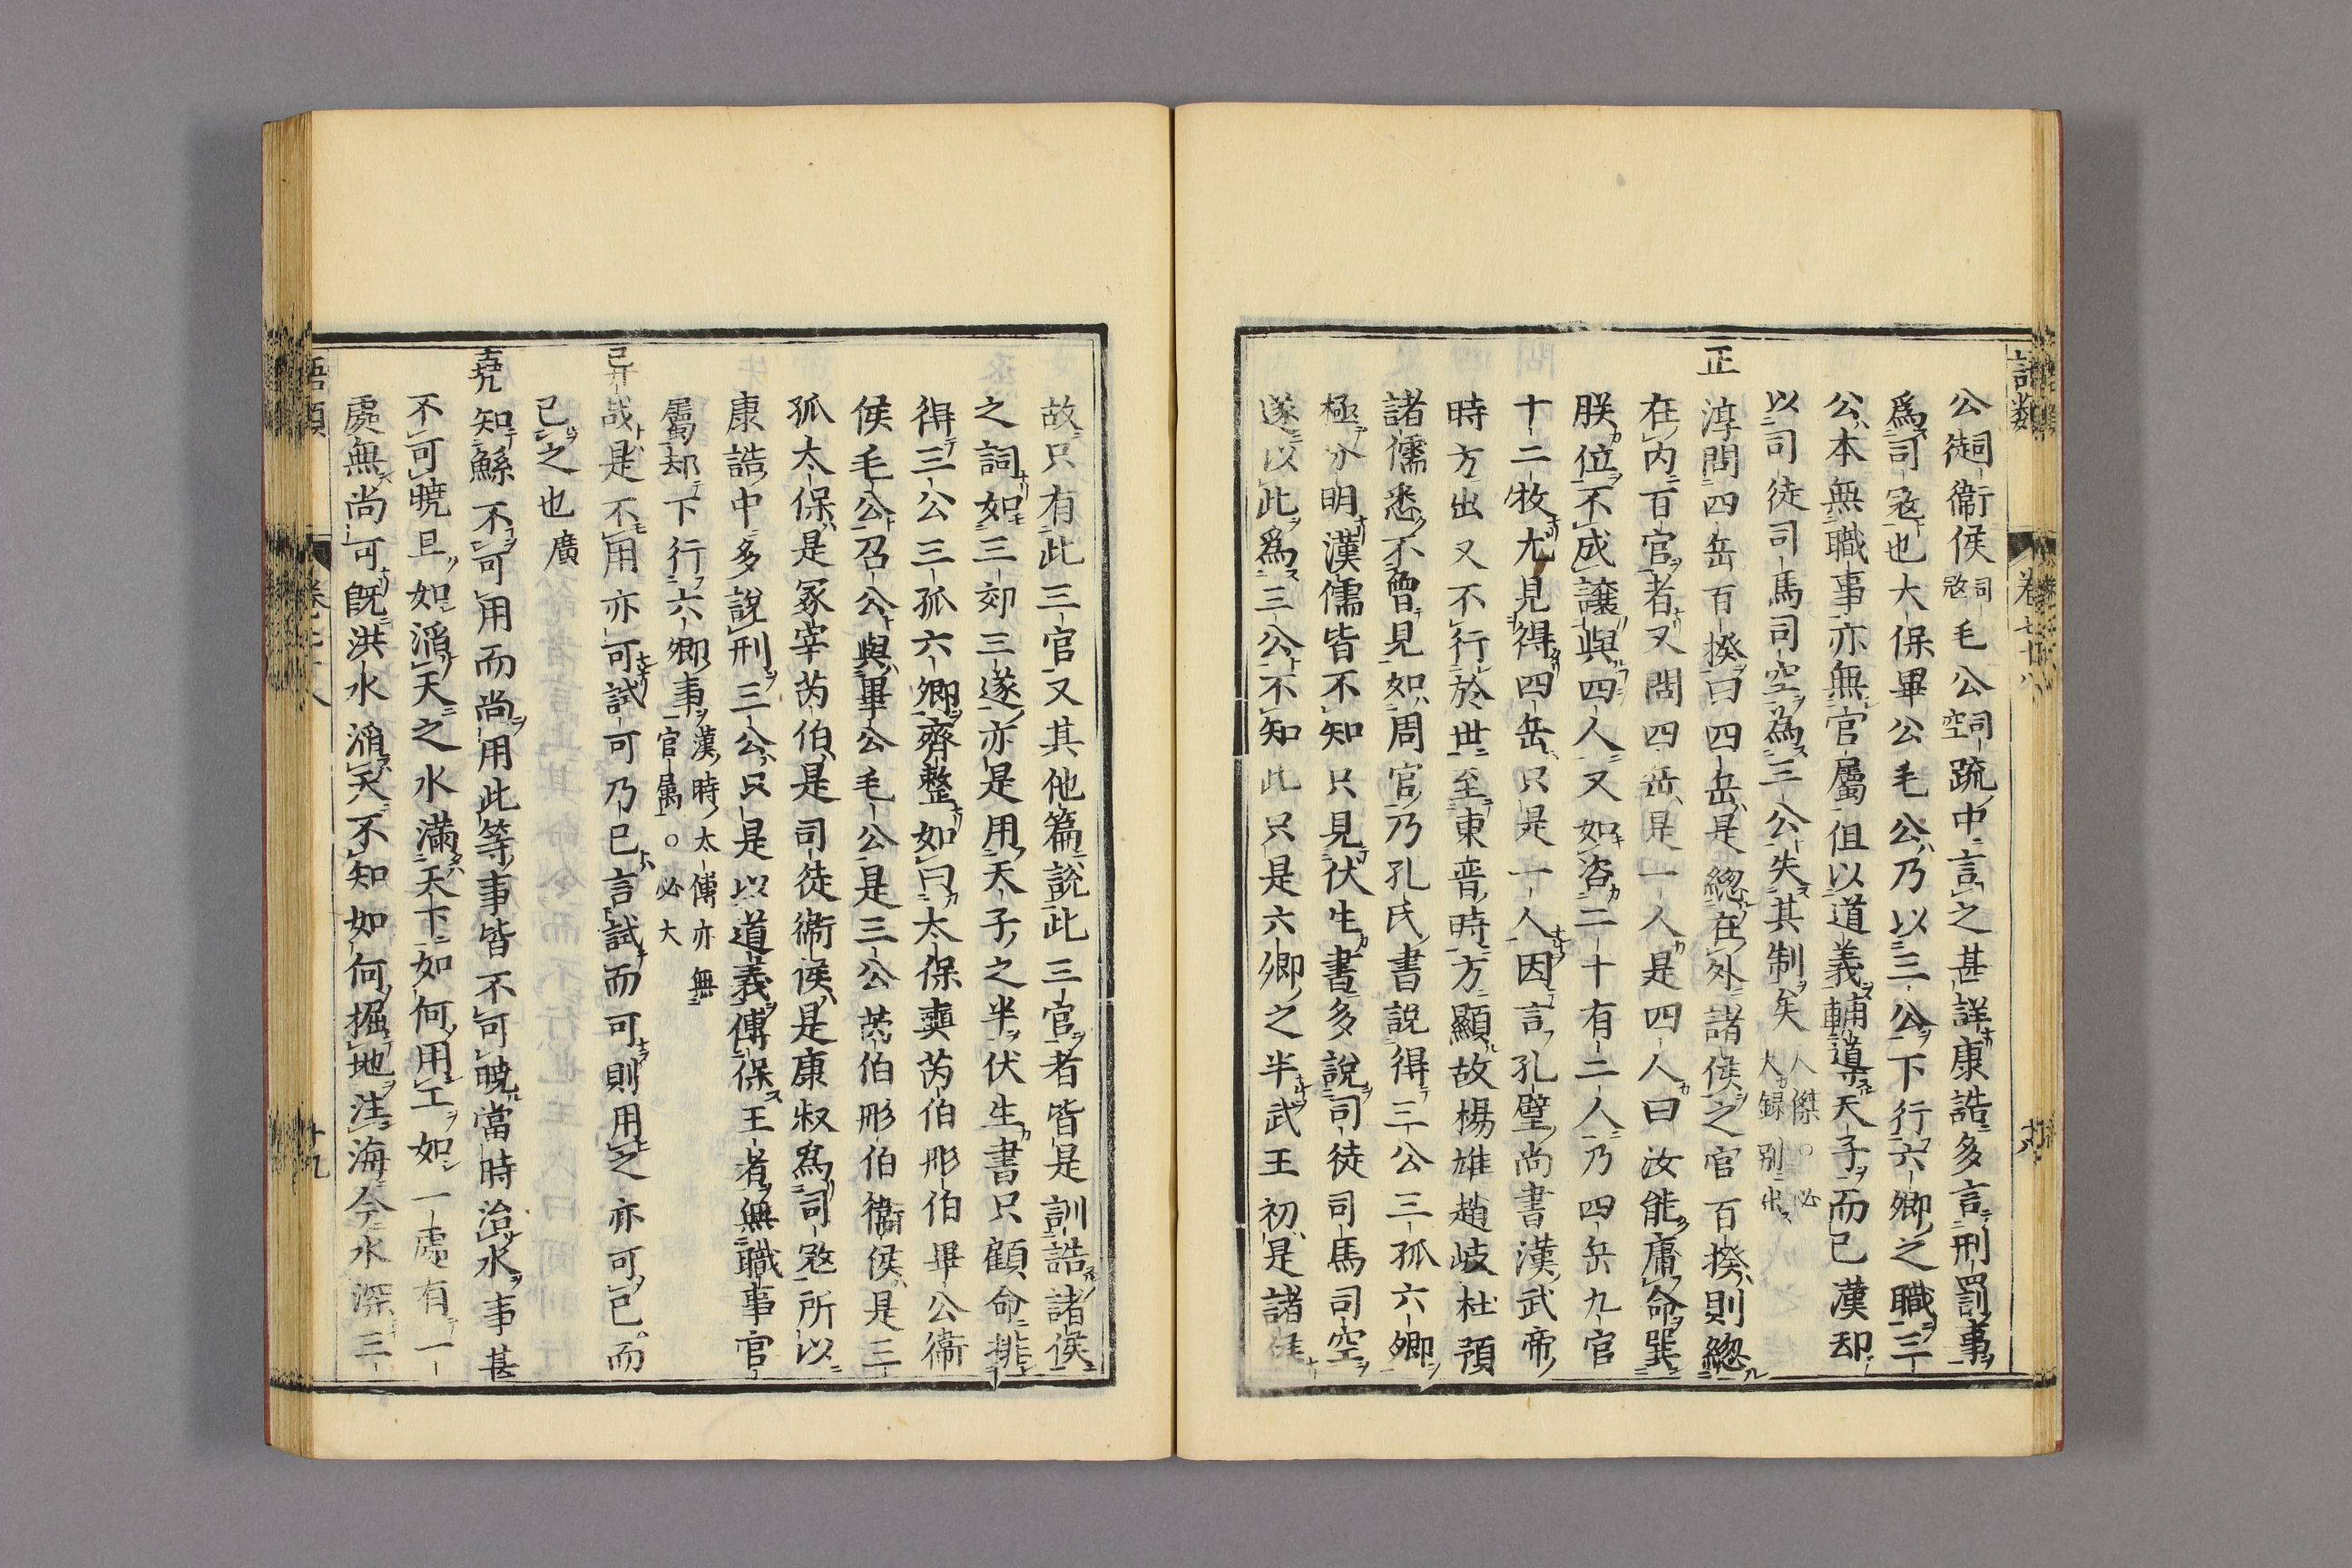 公祠衞侯司冦毛公司空疏中言之甚詳康誥多言刑罰事
爲司冦也大保畢公毛公乃以三公下行六卿之職三
公本無職事亦無官屬但以道義輔導天子而已漢却
以司徒司馬司空爲三公失其制矣人傑○必大録別出
正淳問四岳百揆曰四岳是總在外諸侯之官百揆則總
在内百官者又問四岳是一人是四人曰汝能庸命巽
朕位不成讓與四人又如咨二十有二人乃四岳九官
十二牧尤見得四岳只是一人因言孔壁尚書漢武帝
時方出又不行於世至東晋時方顯故楊雄趙岐杜預
諸儒悉不曾見如周官乃孔氏書説得三公三孤六卿
極分明漢儒皆不知只見伏生書多説司徒司馬司空
遂以此爲三公不知此只是六卿之半武王初是諸侯
故只有此三官又其他篇説此三官者皆是訓誥諸侯
之詞如三郊三遂亦是用天子之半伏生書只顧命排
得三公三孤六卿齊整如曰太保奭芮伯彤伯畢公衞
侯毛公召公與畢公毛公是三公芮伯彤伯衞侯是三
孤太保是冢宰芮伯是司徒衞侯是康叔爲司冦所以
康誥中多説刑三公只是以道義傅保王者無職事官
屬却下行六卿事漢時太傅亦無官屬○必大
异哉是不用亦可試可乃已言試而可則用之亦可已而
已之也廣
堯知鯀不可用而尚用此等事皆不可曉當時治水事甚
不可曉且如滔天之水滿天下如何用工如一處有一
處無尚可旣洪水滔天不知如何掘地注海今水深三
語類
卷七十八
十九